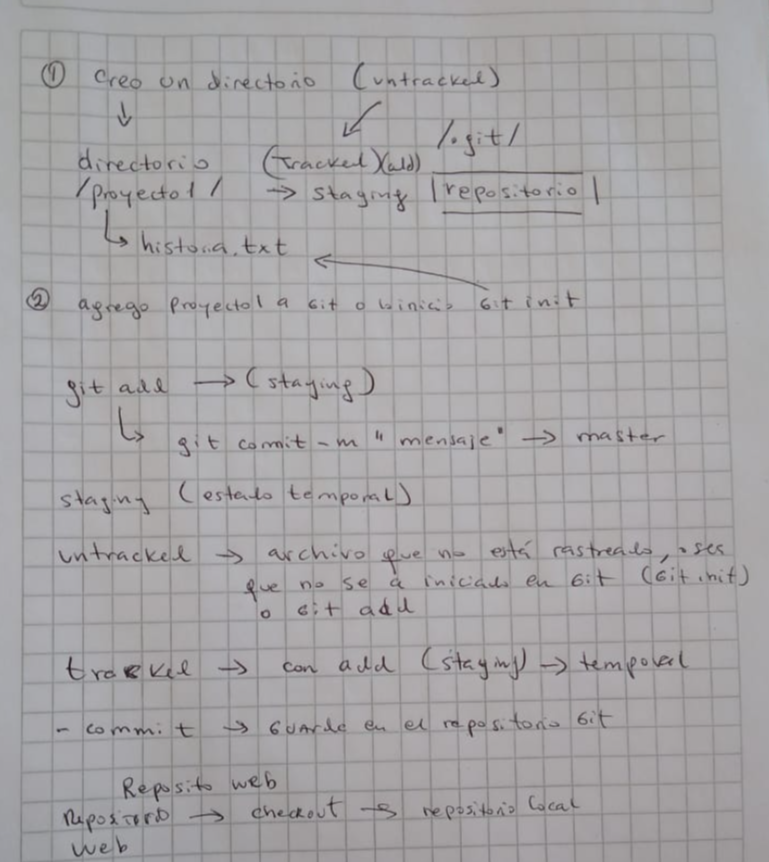 ① Creo un directorio (untracked)
/.git/
directorio (tracked)(add)
/proyecto1/ → staging |repositorio|
↳ historia.txt
② agrego proyecto1 a Git o inicio Git init
git add → (staging)
↳ git comit -m "mensaje" → master
staging (estado temporal)
untracked → archivo que no está rastreado, o sea
que no se a iniciado en Git (Git init)
o Git add
tracked → con add (staging) → temporal
- commit → Guarda en el repositorio Git
Reposito web
Repositorio → checkout → repositorio local
web